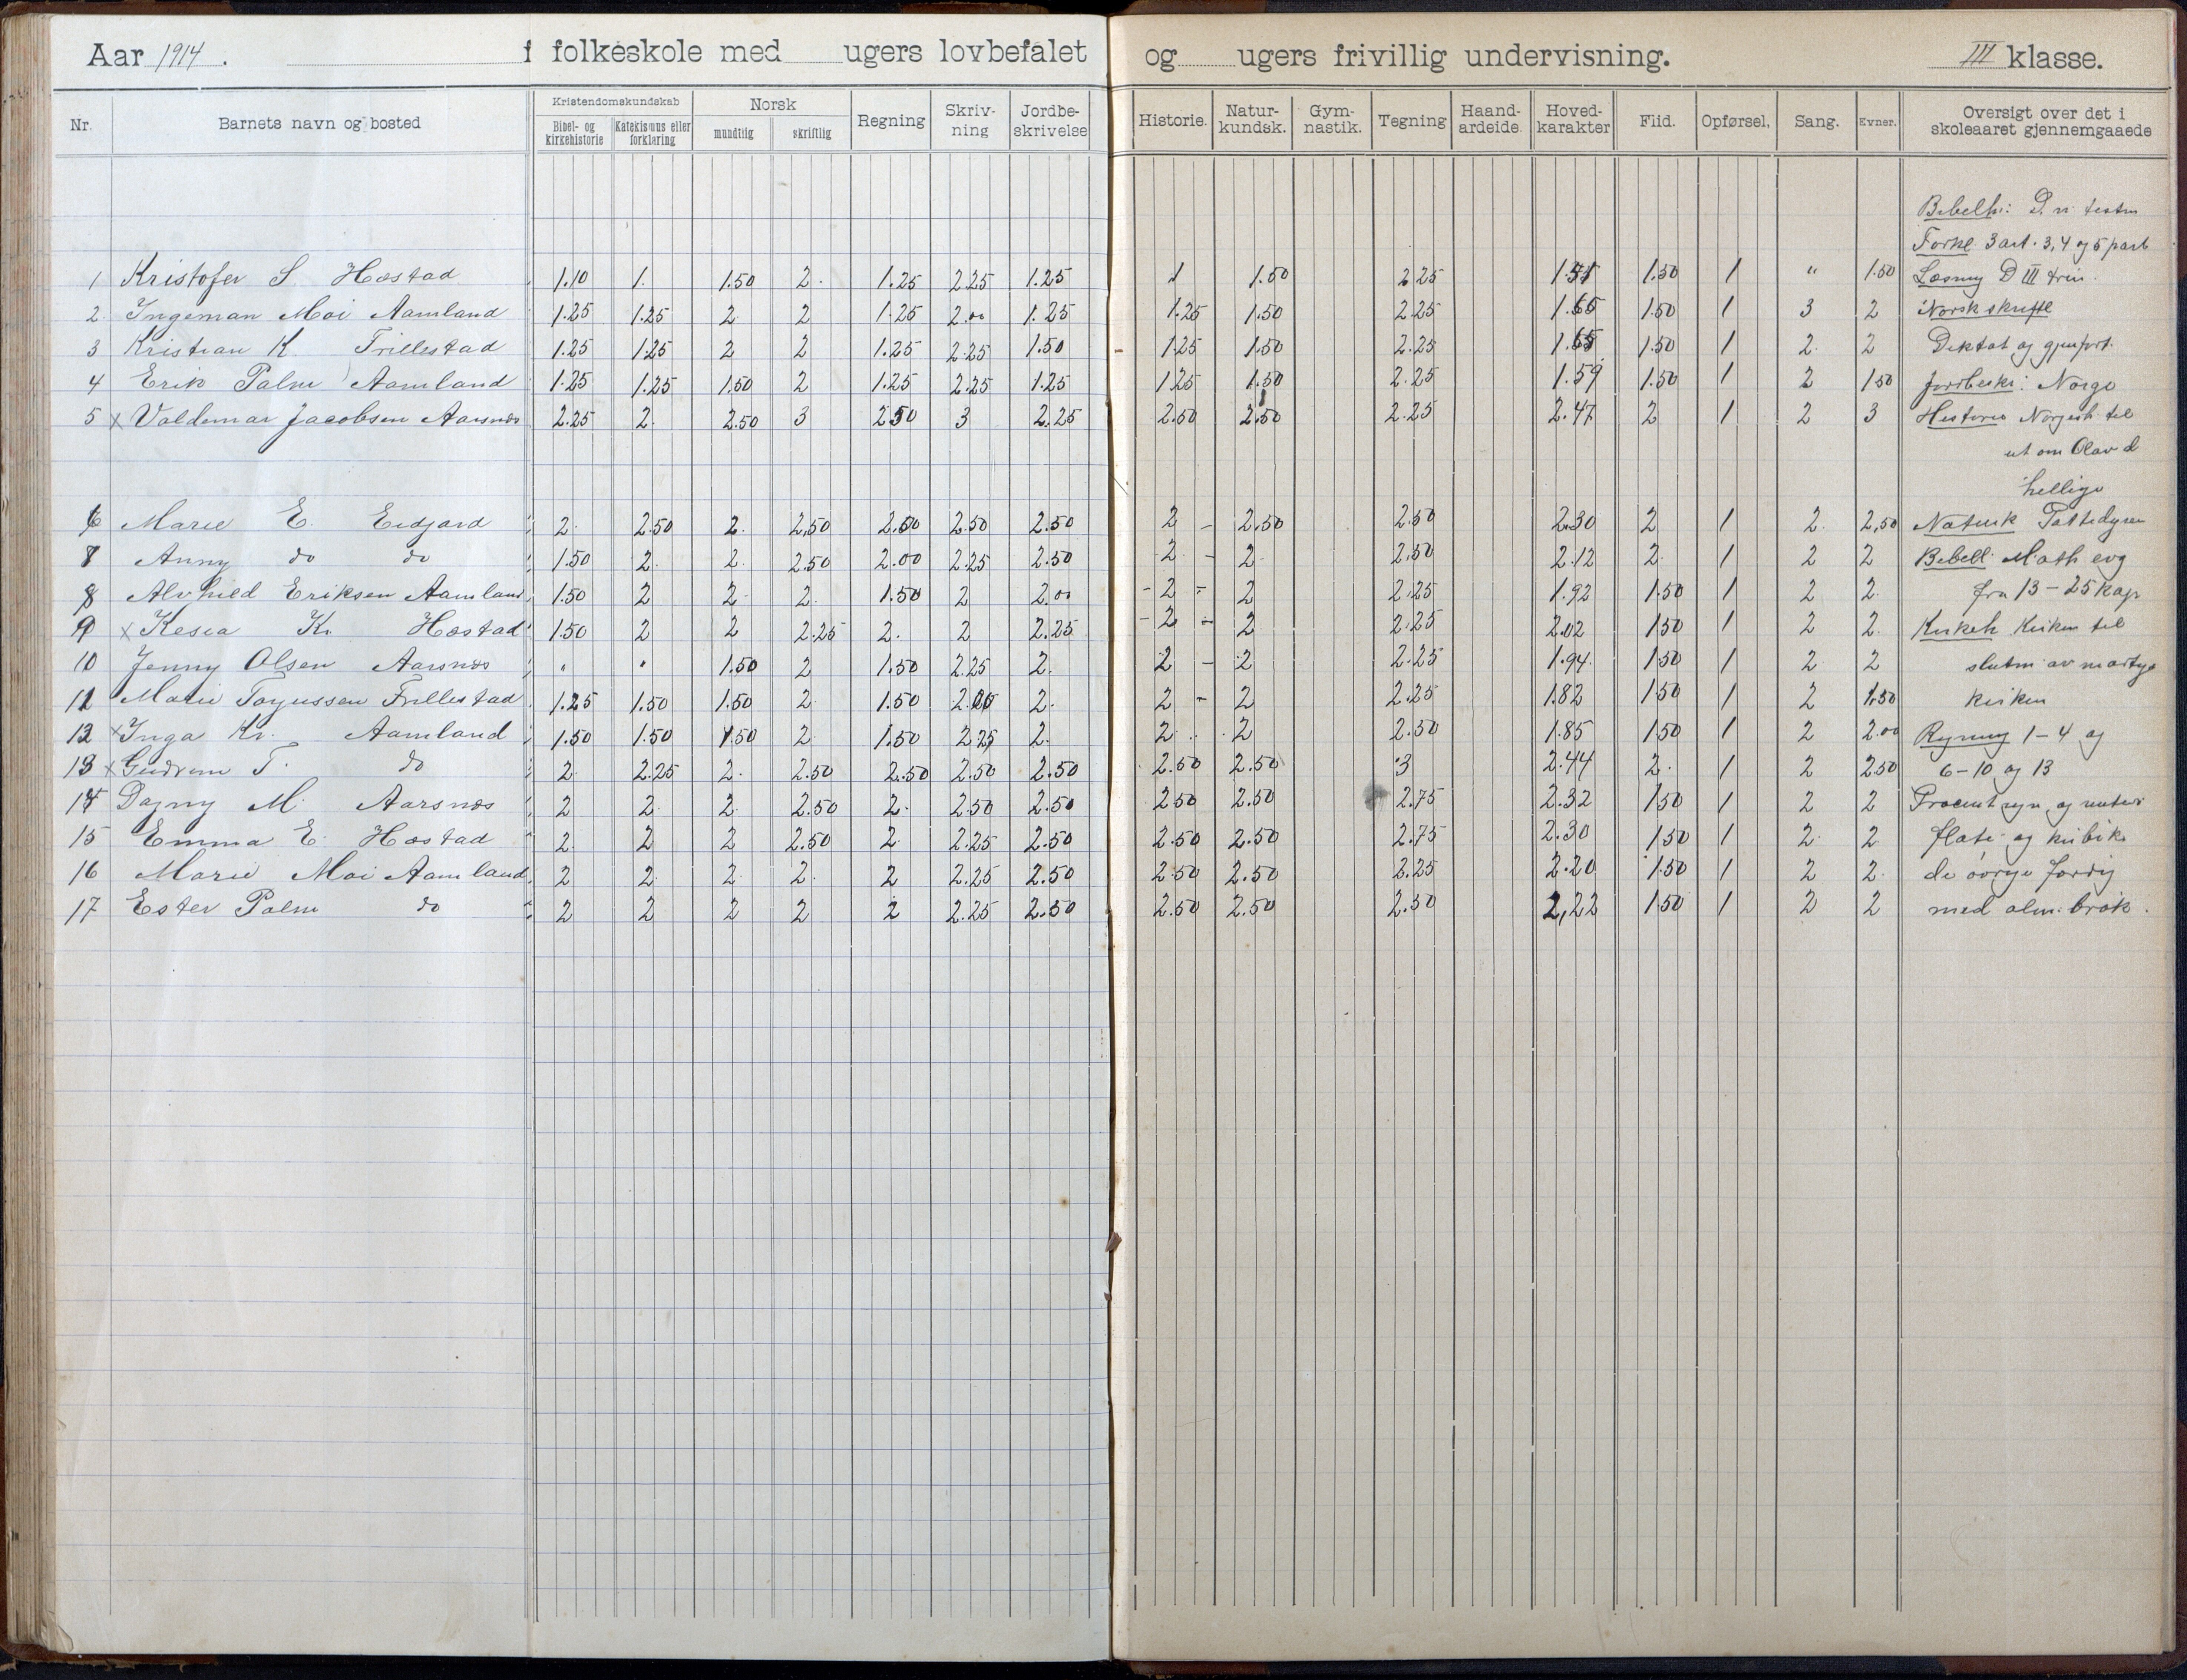 Aar 1914. i folkeskole med ugers lovbefalet og ugers frivillig undervisning. III klasse.
Nr. Barnets navn og bosted Kristendomskundskab Bibel- og kirkehistorie Katekismus eller forklaring Norsk mundtlig skriftlig Regning Skriv-ning Jordbe-skrivelse Historie. Natur-kundsk. Gym-nastik. Tegning Haand-arbeide. Hoved-karakter Flid. Opførsel, Sang. Evner. Oversigt over det i skoleaaret gjennemgaaede
Bibelh: D. n. testm
Forkl. 3 art. 3, 4 og 5 part
1 Kristofer S. Hæstad 1.10 1. 1.50 2. 1.25 2.25 1.25 1 1.50 2.25 1.51 1.50 1 " 1.50 Læsning D III trin.
2. Ingeman Moi Aamland 1.25 1.25 2 2 1.25 2.00 1.25 1.25 1.50 2.25 1.65 1.50 1 3 2 Norsk skriftl
3 Kristian K. Trillestad 1.25 1.25 2 2 1.25 2.25 1.50 1.25 1.50 2.25 1.65 1.50 1 2. 2 Diktat og gjenfort.
4 Erik Palm Aamland 1.25 1.25 1.50 2 1.25 2.25 1.25 1.25 1.50 2.25 1.59 1.50 1 2 1.50 Jordbeskr: Norge
5 x Valdemar Jacobsen Aarsnæs 2.25 2. 2.50 3 2.50 3 2.25 2.50 2.50 2.25 2.47 2 1 2 3 Historie Norgesh. til
ut om Olav d
hellige
6 Marie E. Eidjord 2. 2.50 2. 2.50 2.50 2.50 2.50 2 - 2.50 2.50 2.30 2 1 2. 2.50 Naturk Pattedyren
7 Anny do do 1.50 2. 2. 2.50 2.00 2.25 2.50 2 - 2 2.50 2.12 2. 1 2 2 Bibell. Math evg
8 Alvhild Eriksen Aamland 1.50 2 2 2. 1.50 2 2.00 - 2 - 2 2.25 1.92 1.50 1 2 2. fra 13 - 25 kap
9 x Kesia Kr. Hæstad 1.50 2 2 2.25 2. 2 2.25 - 2 - 2 2.25 2.02 1.50 1 2 2. Kirkeh Kirken til
10 Jenny Olsen Aarsnæs " " 1.50 2 1.50 2.25 2. 2 - 2 2.25 1.94. 1.50 1 2. 2 slutn av martyr
11 Marie Torjussen Trillestad 1.25 1.50 1.50 2 1.50 2.00 2. 2 - 2 2.25 1.82 1.50 1 2 1.50 kirken
12 x Inga Kr. Aamland 1.50 1.50 1.50 2. 1.50 2.25 2. 2 2 2.50 1.85 1.50 1 2 2.00 Regning 1 - 4 og
13 x Gudrun T. do 2. 2.25 2. 2.50 2.50 2.50 2.50 2.50 2.50 3 2.44 2. 1 2 2.50 6 - 10 og 13
14 Dagny M. Aarsnæs 2 2. 2. 2.50 2. 2.50 2.50 2.50 2.50 2.75 2.32 1.50 1 2 2 Procent
15 Emma E. Hæstad 2. 2 2 2.50 2. 2.25 2.50 2.50 2.50 2.75 2.30 1.50 1 2. 2 flate- og kubik
16 Marie Moi Aamland 2 2. 2. 2. 2 2.25 2.50 2.50 2.50 2.25 2.20 1.50 1 2 2. de øvrige færdig
17 Ester Palm do 2 2 2 2 2 2.25 2.50 2.50 2.50 2.50 2,22 1.50 1 2 2 med alm. brøk.